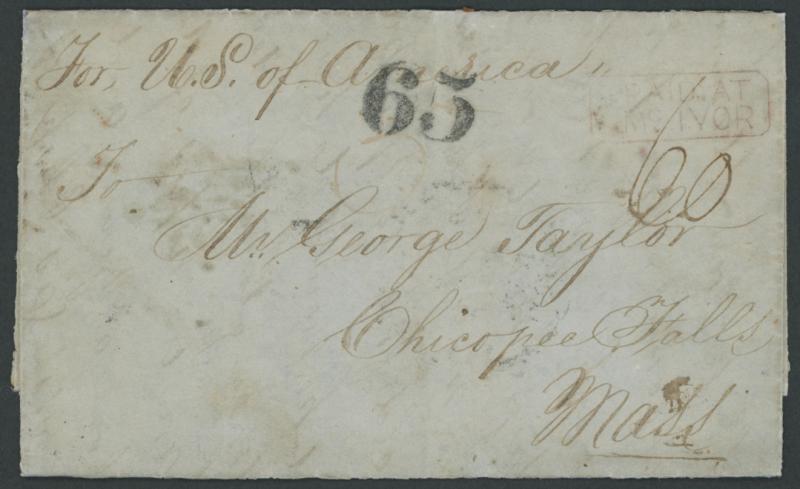 For, U.S. of America,,
65
PAID AT
Mc IVOR
60
To
Mr. George Taylor
Chicopee Falls
Mass